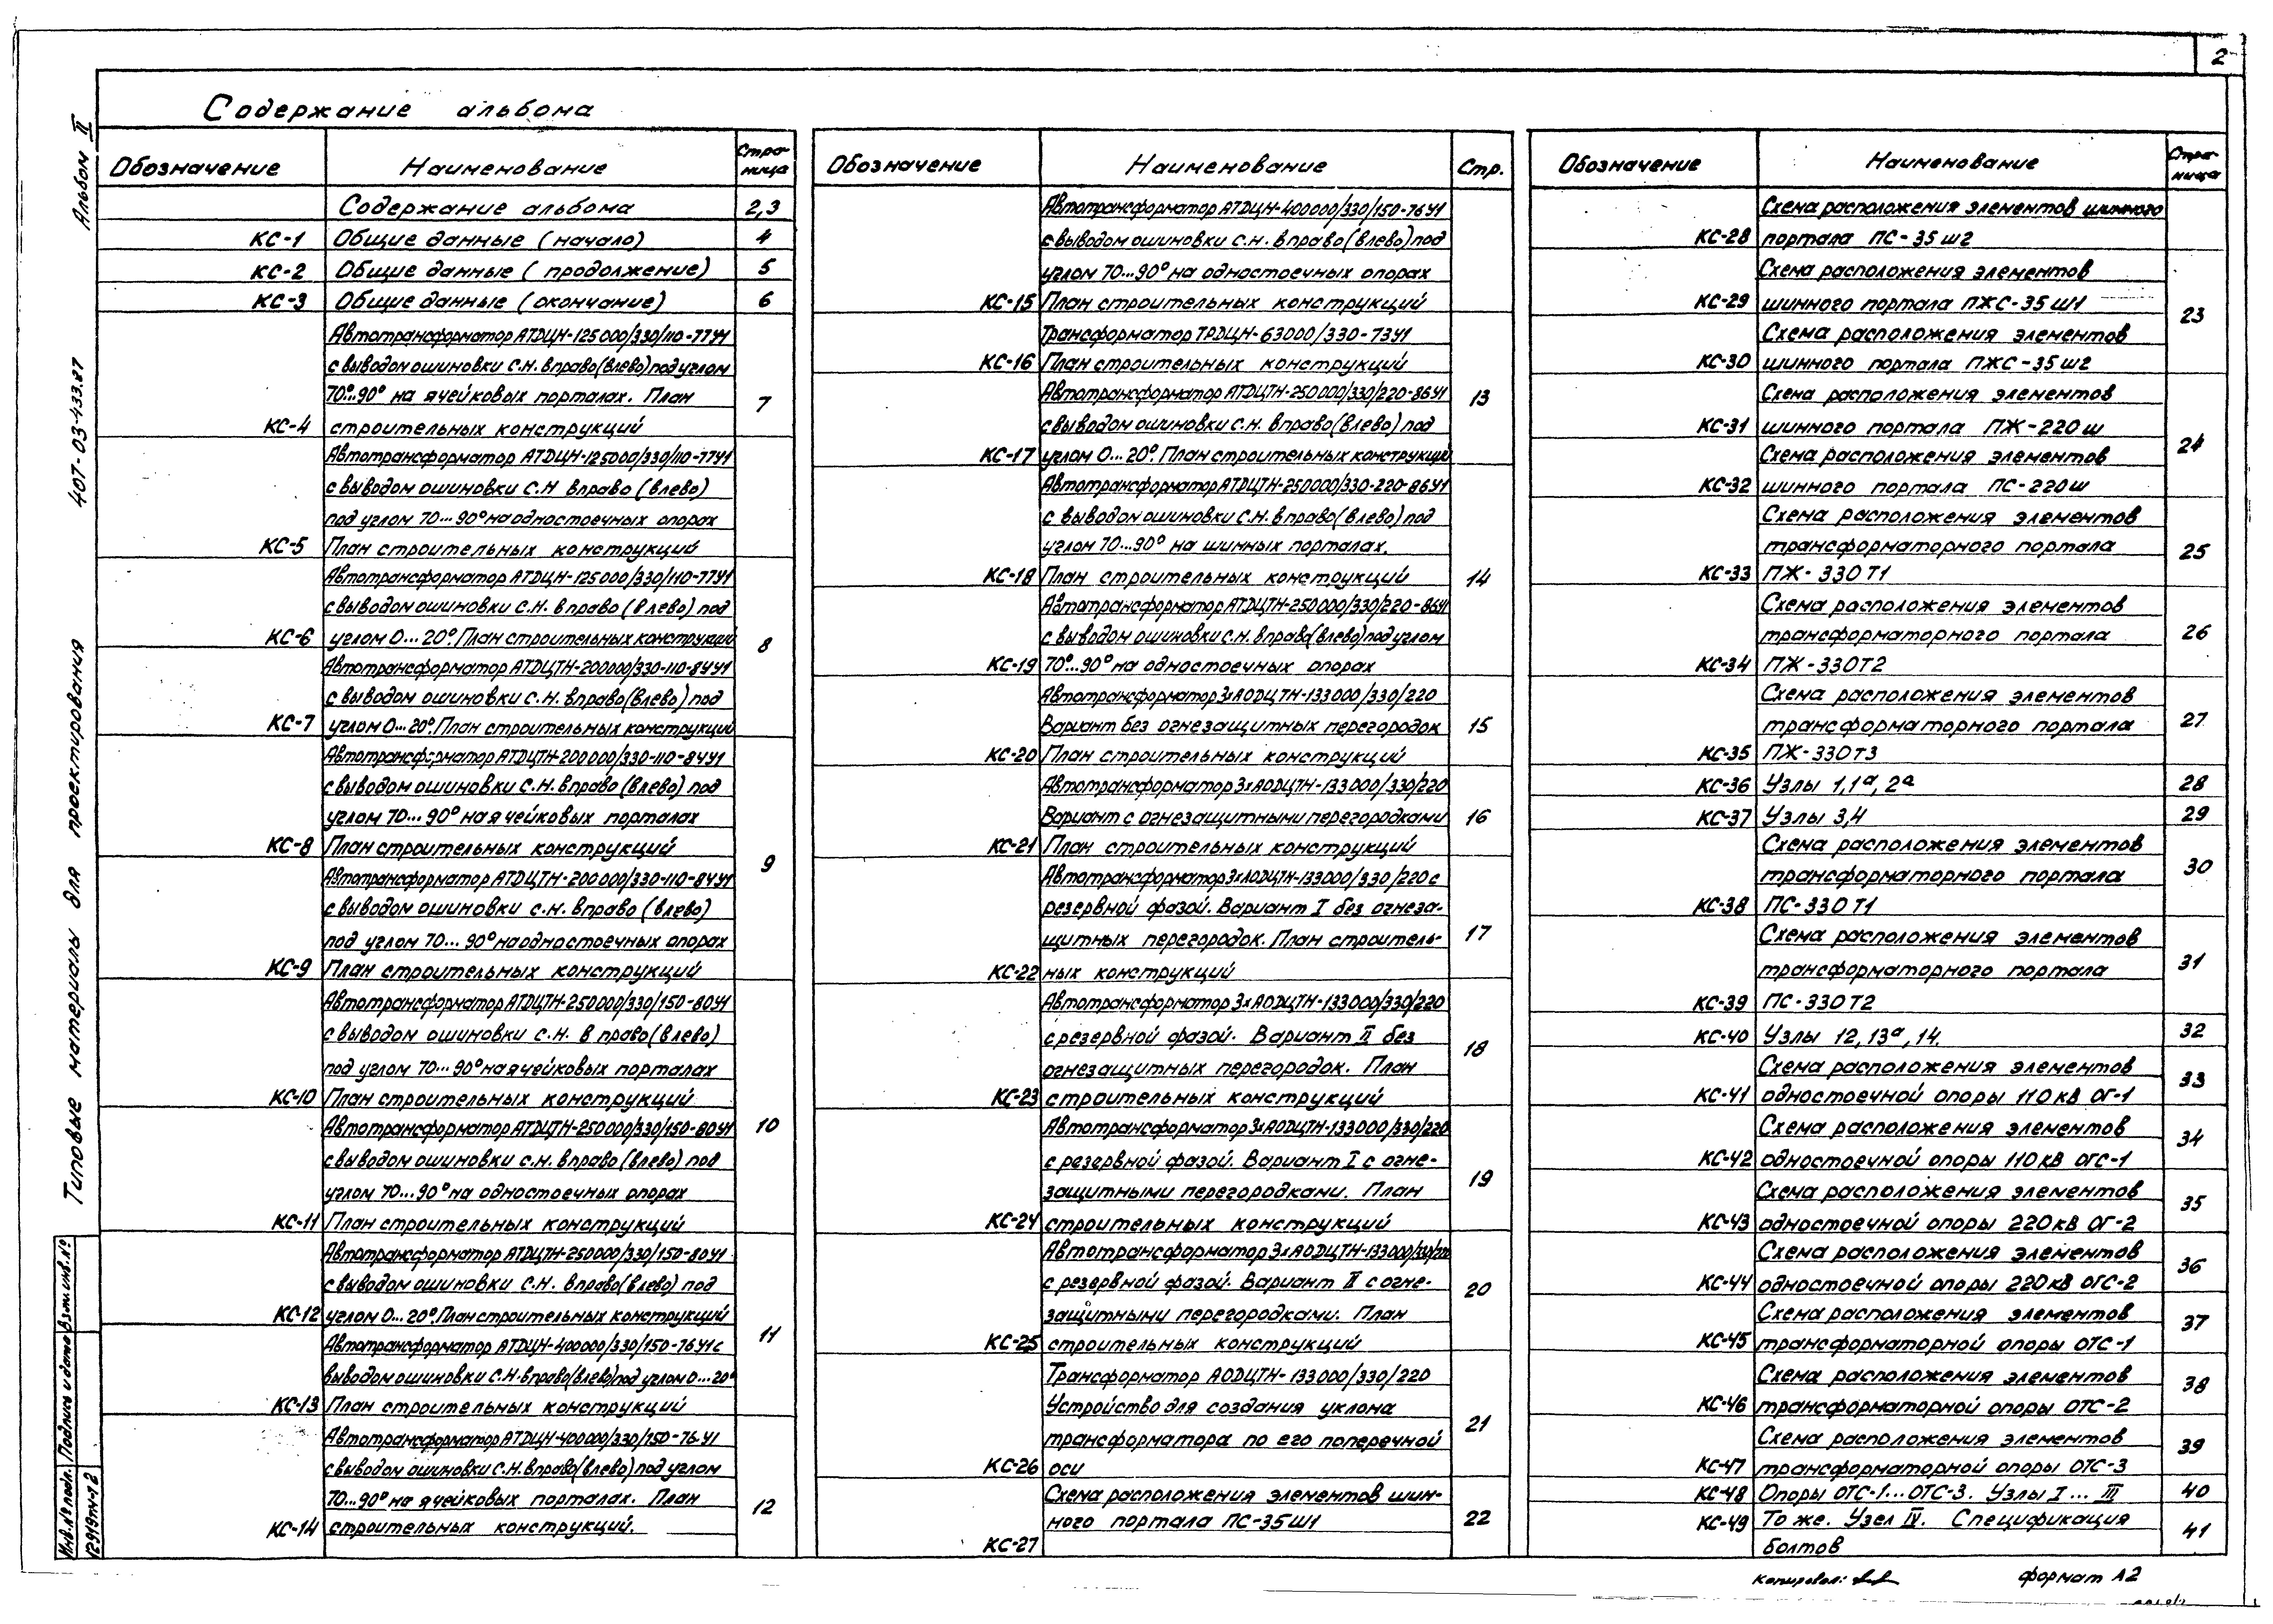 2
Содержание альбома
Обозначение Наименование Стра-
ница
Содержание альбома 2,3
КС-1 Общие данные (начало) 4
КС-2 Общие данные (продолжение) 5
КС-3 Общие данные (окончание) 6
Автотрансформатор АТДЦН-125000/330/110-77У1
с выводом ошиновки С.Н. вправо(влево) под углом
70°...90° на ячейковых порталах. План 7
КС-4 строительных конструкций
Автотрансформатор АТДЦН-125000/330/110-77У1
с выводом ошиновки С.Н вправо (влево)
под углом 70...90° на одностоечных опорах
КС-5 План строительных конструкций
Автотрансформатор АТДЦН-125000/330/110-77У1
с выводом ошиновки С.Н. вправо (влево) под
КС-6 углом 0...20°. План строительных конструкций 8
Автотрансформатор АТДЦТН-200000/330-110-84У1
с выводом ошиновки С.Н. вправо(влево) под
КС-7 углом 0...20°. План строительных конструкций
Автотрансформатор АТДЦТН-200000/330-110-84У1
с выводом ошиновки С.Н. вправо (влево) под
углом 70...90° на ячейковых порталах
КС-8 План строительных конструкций 9
Автотрансформатор АТДЦТН-200000/330-110-84У1
с выводом ошиновки с.н. вправо (влево)
под углом 70...90° на одностоечных опорах
КС-9 План строительных конструкций
Автотрансформатор АТДЦТН-250000/330/150-80У1
с выводом ошиновки с.н. в право(влево)
под углом 70...90° на ячейковых порталах
КС-10 План строительных конструкций
Автотрансформатор АТДЦТН-250000/330/150-80У1 10
с выводом ошиновки с.н. вправо (влево) под
углом 70...90° на одностоечных опорах
КС-11 План строительных конструкций
Автотрансформатор АТДЦТН-250000/330/150-80У1
с выводом ошиновки С.Н. вправо(влево) под
КС-12 углом 0...20°. План строительных конструкций 11
Автотрансформатор АТДЦН-400000/330/150-76У1 с
выводом ошиновки С.Н. вправо(влево) под углом 0...20°
КС-13 План строительных конструкций
Автотрансформатор АТДЦН-400000/330/150-76У1
с выводом ошиновки С.Н. вправо(влево) под углом
70...90° на ячейковых порталах. План 12
КС-14 строительных конструкций.
Обозначение Наименование Стр.
Автотрансформатор АТДЦН-400000/330/150-76У1
с выводом ошиновки С.Н. вправо(влево) под
углом 70...90° на одностоечных опорах
КС-15 План строительных конструкций
Трансформатор ТРДЦН-63000/330-73У1
КС-16 План строительных конструкций
Автотрансформатор АТДЦТН-250000/330/220-86У1 13
с выводом ошиновки С.Н. вправо(влево) под
КС-17 углом 0...20°. План строительных конструкций
Автотрансформатор АТДЦТН-250000/330-220-86У1
с выводом ошиновки С.Н. вправо(влево) под
углом 70...90° на шинных порталах.
КС-18 План строительных конструкций 14
Автотрансформатор АТДЦТН-250000/330/220-86У1
с выводом ошиновки С.Н. вправо(влево) под углом
КС-19 70°...90° на одностоечных опорах
Автотрансформатор 3хАОДЦТН-133000/330/220
Вариант без огнезащитных перегородок 15
КС-20 План строительных конструкций
Автотрансформатор 3хАОДЦТН-133000/330/220
Вариант с огнезащитными перегородками 16
КС-21 План строительных конструкций
Автотрансформатор 3хАОДЦТН-133000/330/220 с
резервной фазой. Вариант I без огнеза-
щитных перегородок. План строитель- 17
КС-22 ных конструкций
Автотрансформатор 3хАОДЦТН-133000/330/220
с резервной фазой. Вариант II без 18
огнезащитных перегородок. План
КС-23 строительных конструкций
Автотрансформатор 3хАОДЦТН-133000/330/220
с резервной фазой. Вариант I с огне-
защитными перегородками. План 19
КС-24 строительных конструкций
Автотрансформатор 3хАОДЦТН-133000/330/220
с резервной фазой. Вариант II с огне- 20
защитными перегородками. План
КС-25 строительных конструкций
Трансформатор АОДЦТН-133000/330/220
Устройство для создания уклона
трансформатора по его поперечной 21
КС-26 оси
Схема расположения элементов шин-
ного портала ПС-35Ш1 22
КС-27
Обозначение Наименование Стра-
ница
Схема расположения элементов шинного
КС-28 портала ПС-35Ш2
Схема расположения элементов
КС-29 шинного портала ПЖС-35Ш1 23
Схема расположения элементов
КС-30 шинного портала ПЖС-35Ш2
Схема расположения элементов
КС-31 шинного портала ПЖ-220Ш 24
Схема расположения элементов
КС-32 шинного портала ПС-220Ш
Схема расположения элементов
трансформаторного портала 25
КС-33 ПЖ-330Т1
Схема расположения элементов
трансформаторного портала 26
КС-34 ПЖ-330Т2
Схема расположения элементов
трансформаторного портала 27
КС-35 ПЖ-330Т3
КС-36 Узлы 1,1а, 2а 28
КС-37 Узлы 3,4 29
Схема расположения элементов
трансформаторного портала 30
КС-38 ПС-330Т1
Схема расположения элементов
трансформаторного портала 31
КС-39 ПС-330Т2
КС-40 Узлы 12, 13а, 14. 32
Схема расположения элементов 33
КС-41 одностоечной опоры 110кВ ОГ-1
Схема расположения элементов 34
КС-42 одностоечной опоры 110кВ ОГС-1
Схема расположения элементов 35
КС-43 одностоечной опоры 220кВ ОГ-2
Схема расположения элементов 36
КС-44 одностоечной опоры 220кВ ОГС-2
Схема расположения элементов 37
КС-45 трансформаторной опоры ОТС-1
Схема расположения элементов 38
КС-46 трансформаторной опоры ОТС-2
Схема расположения элементов 39
КС-47 трансформаторной опоры ОТС-3
КС-48 Опоры ОТС-1...ОТС-3. Узлы I...III 40
КС-49 То же. Узел IV. Спецификация 41
болтов
Типовые материалы для проектирования 407-03-433.87 Альбом II
Инв.№ подл. Подпись и дата Взам.инв.№
12919тм-т2
Копировал:
формат А2